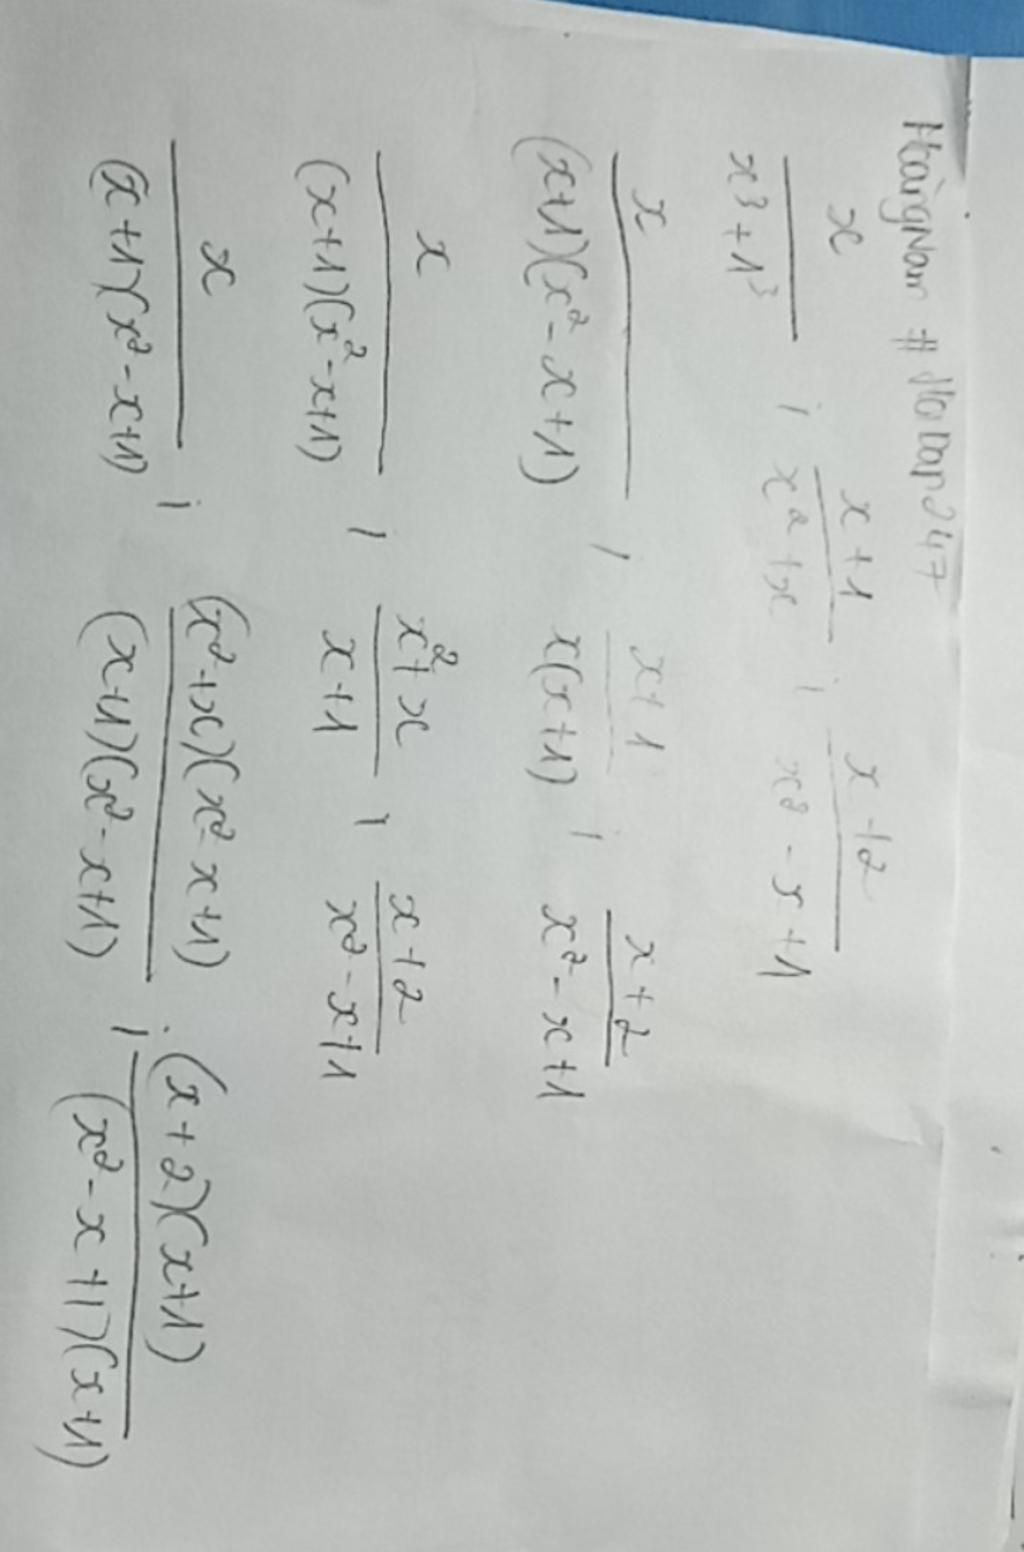 HoàngNam # Hoidap247
x/(x³+1³) ; (x+1)/(x²+x) ; (x+2)/(x²-x+1)
x/((x+1)(x²-x+1)) ; (x+1)/(x(x+1)) ; (x+2)/(x²-x+1)
x/((x+1)(x²-x+1)) ; (x²+x)/(x+1) ; (x+2)/(x²-x+1)
x/((x+1)(x²-x+1)) ; (x²+x)(x²-x+1)/((x+1)(x²-x+1)) ; (x+2)(x+1)/((x²-x+1)(x+1))